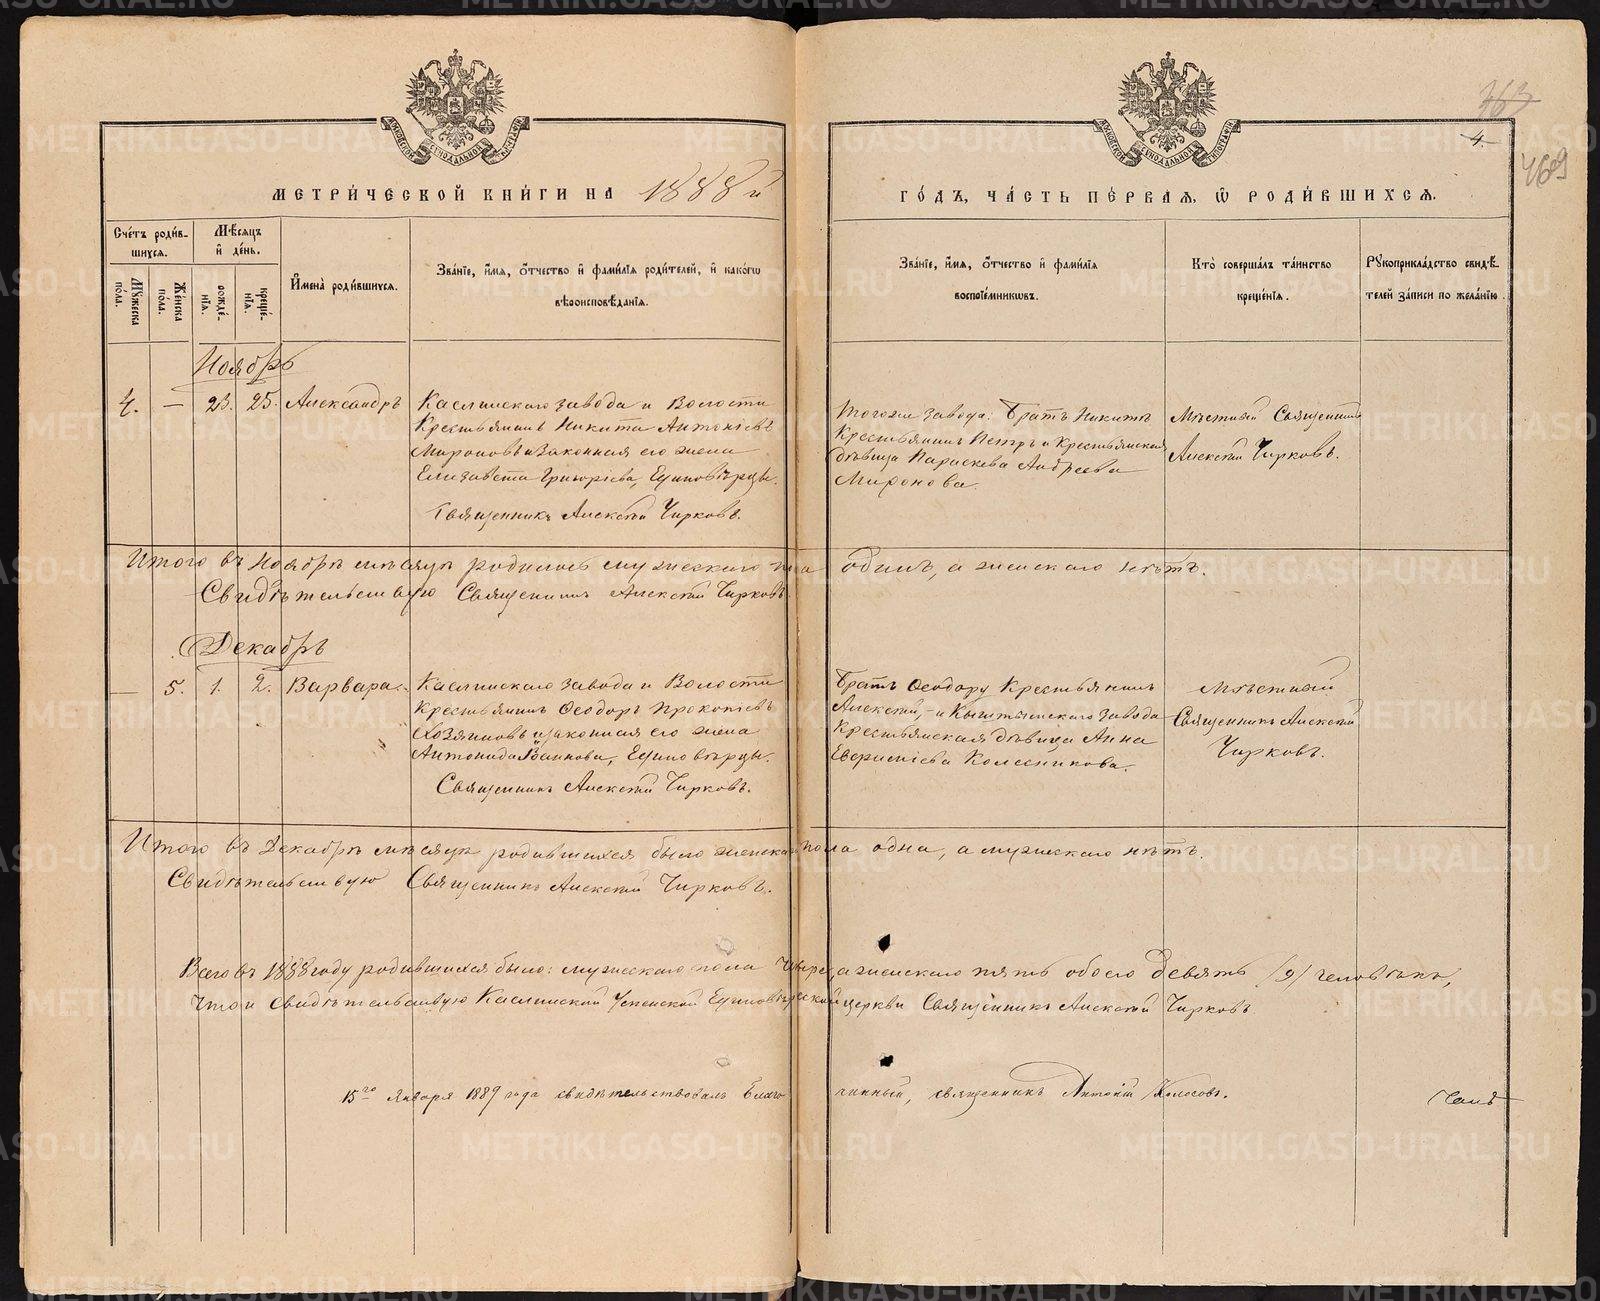 МЕТРИ́ЧЕСКОЙ КНИ́ГИ НА 1888 й
ГО́ДЪ, ЧА́СТЬ ПЕ́РВАЯ, Ѡ РОДИ́ВШИХСЯ.
363
4.
469
Сче́тъ роди́в-
шихся.
Мѣ́сяцъ
и де́нь.
Му́жеска
по́ла.
Же́нска
по́ла.
рожде́-
нія.
креще́-
нія.
Имена̀ роди́вшихся.
Зва́ніе, и́мя, о́тчество и фами́лія роди́телей, и како́гѡ
вѣроисповѣ́данія.
Зва́ніе, и́мя, о́тчество и фами́лія
воспріе́мниковъ.
Кто̀ соверша́лъ та́инство
креще́нія.
Рукоприкла́дство свидѣ́-
телей за́писи по жела́нію.
Ноябрь
4. — 23. 25. Александръ
Каслинскаго завода и Волости
Крестьянинъ Никита Антоніевъ
Мироновъ и законная его жена
Елизавета Григоріева, Единовѣрцы.
Священникъ Алексѣй Чирковъ.
Тогоже завода: Братъ Никиты
Крестьянинъ Петръ и Крестьянская
дѣвица Параскева Андреева
Миронова.
Мѣстный Священникъ
Алексѣй Чирковъ.
Итого въ Ноябрѣ мѣсяцѣ родилось мужескаго пола одинъ, а женскаго нѣтъ.
Свидѣтельствую Священникъ Алексѣй Чирковъ.
Декабрь
— 5. 1. 2. Варвара.
Каслинскаго завода и Волости
Крестьянинъ Ѳеодоръ Прокопіевъ
Хозяиновъ и законная его жена
Антонида Іоаннова, Единовѣрцы.
Священникъ Алексѣй Чирковъ.
Братъ Ѳеодору Крестьянинъ
Алексѣй, - и Кыштымскаго завода
Крестьянская дѣвица Анна
Колесникова.
Мѣстный
Священникъ Алексѣй
Чирковъ.
Итого въ Декабрѣ мѣсяцѣ родившихся было женскаго пола одна, а мужскаго нѣтъ.
Свидѣтельствую Священникъ Алексѣй Чирковъ.
Всего въ 1888 году родившихся было: мужескаго пола четыре, а женскаго пять обоего девять /9/ человѣкъ,
что и свидѣтельствую Каслинской Успенской Единовѣрческой церкви Священникъ Алексѣй Чирковъ
15го Января 1889 года свидѣтельствовалъ Благочинный, священникъ Антоній Колосовъ.